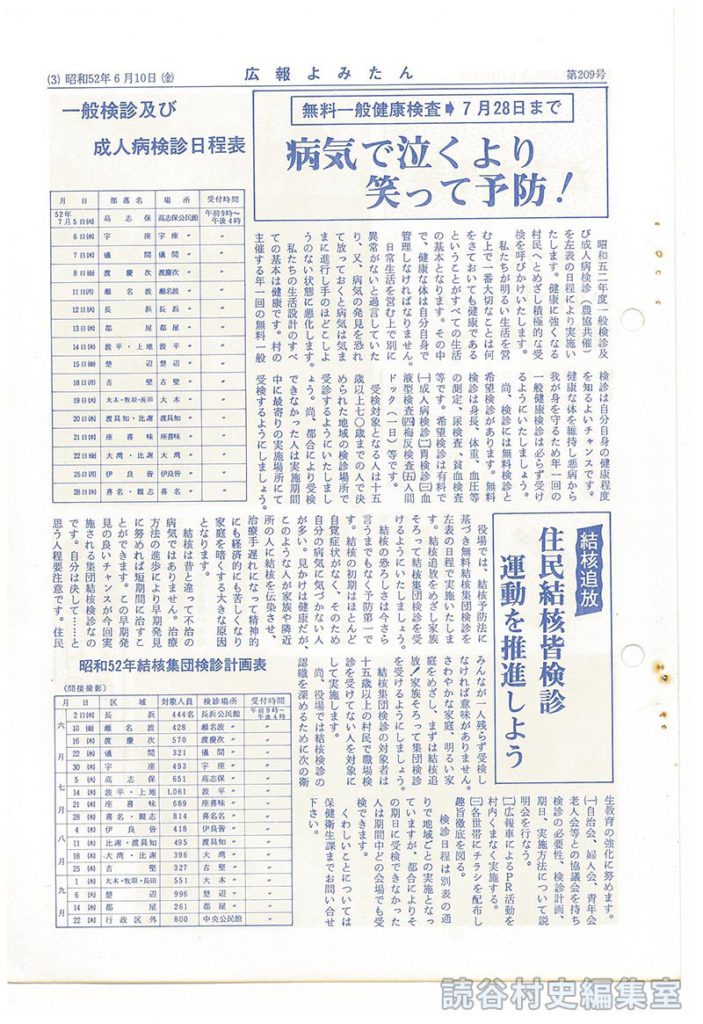 (3) 昭和52年6月10日(金)
広報よみたん
第209号
無料一般健康検査➡7月28日まで
病気で泣くより
笑って予防!
昭和五二年度一般検診及
び成人病検診(農協共催)
を左表の日程により実施い
たします。健康に強くなる
村民へとめざし積極的な受
検を呼びかけいたします。
私たちが明るい生活を営
む上で一番大切なことは何
をさておいても健康である
ということがすべての生活
の基本となります。その中
で、健康な体は自分自身で
管理しなければなりません。
日常生活を営む上で別に
異常がないと過言していた
り、又、病気の発見を恐れ
て放っておくと病気は気ま
まに進行し手のほどこしよ
うのない状態に悪化します。
私たちの生活設計のすべ
ての基本は健康です。村の
主催する年一回の無料一般
検診は自分自身の健康程度
を知るよいチャンスです。
健康な体を維持し悪病から
我が身を守るため年一回の
一般健康検診は必らず受け
るようにいたしましょう。
尚、検診には無料検診と
希望検診があります。無料
検診は身長、体重、血圧等
の測定、尿検査、貧血検査
等です。希望検診は有料で
㈠成人病検診㈡胃検診㈢血
液型検査㈣梅反検査㈤人間
ドック(一日)等です。
受検対象となる人は十五
歳以上七〇歳までの人で決
められた地域の検診場所で
受診するようにいたしまし
ょう。尚、都合により受検
できなかった人は実施期間
中に最寄りの実施場所にて
受検するようにしましょう。
一般検診及び
成人病検診日程表
月日 部落名 場所 受付時間
52年7月5日㈫ 高志保 高志保公民館 午前9時〜午後4時
6日㈬ 宇座 宇座〃 〃
7日㈭ 儀間 儀間〃 〃
8日㈮ 渡慶次 渡慶次〃 〃
11日㈪ 瀬名波 瀬名波〃 〃
12日㈫ 長浜 長浜〃 〃
13日㈬ 都屋 都屋〃 〃
14日㈭ 波平・上地 波平〃 〃
15日㈮ 楚辺 楚辺〃 〃
18日㈪ 古堅 古堅〃 〃
19日㈫ 大木・牧原・長田 大木〃 〃
20日㈬ 渡具知・比謝 渡具知〃 〃
21日㈭ 座喜味 座喜味〃 〃
22日㈮ 大湾・比謝 大湾〃 〃
25日㈪ 伊良皆 伊良皆〃 〃
28日㈭ 喜名・親志 喜名〃 〃
結核追放
住民結核皆検診
運動を推進しよう
役場では、結核予防法に
基づき無料結核集団検診を
左表の日程で実施いたしま
す。結核追放をめざし家族
そろって結核集団検診を受
けるようにいたしましょう。
結核の恐ろしさは今さら
言うまでもなく予防第一で
す。結核の初期はほとんど
自覚症状がなく、そのため
自分の病気に気づかない人
が多い。見かけは健康だが、
このような人が家族や隣近
所の人に結核を伝染させ、
治療手遅れになって精神的
にも経済的にも苦しくなり
家庭を暗くする大きな原因
となります。
結核は昔と違って不治の
病気ではありません。治療
方法の進歩により早期発見
に努めれば短期間に治すこ
とができます。この早期発
見の良いチャンスが今回実
施される集団結核検診なの
です。自分は決して……と
思う人程要注意です。住民
みんなが一人残らず受検し
なければ意味がありません。
さわやかな家庭、明るい家
庭をめざし、まずは結核追
放!家族そろって集団検診
を受けるようにしましょう。
結核集団検診の対象者は
十五歳以上の村民で職場検
診を受けてない人を対象に
して実施します。
尚、役場では結核検診の
認識を深めるために次の衛
生教育の強化に努めます。
㈠自治会、婦人会、青年会
老人会等との協議会を持ち
検診の必要性、検診計画、
期日、実施方法について説
明会を行なう。
㈡広報車によるPR活動を
村内くまなく実施する。
㈢各世帯にチラシを配布し
趣旨徹底を図る。
検診日程は別表の通
りで地域ごとの実施となっ
ていますが、都合によりそ
の期日に受検できなかった
人は期間中どの会場でも受
検できます。
くわしいことについては
保健衛生課までお問い合せ
下さい。
昭和52年結核集団検診計画表
(間接撮影)
月日 区域 対象人員 検診場所 受付時間
六月 2日㈭ 長浜 444名 長浜公民館 午前9時〜午後4時
10㈮ 瀬名波 428 瀬名波〃 〃
16㈭ 渡慶次 570 渡慶次〃 〃
22㈬ 儀間 321 儀間〃 〃
30㈭ 宇座 493 宇座〃 〃
七月 5㈫ 高志保 651 高志保〃 〃
14㈭ 波平・上地 1,061 波平〃 〃
21㈭ 座喜味 689 座喜味〃 〃
28㈭ 喜名・親志 814 喜名〃 〃
八月 4㈭ 伊良皆 418 伊良皆〃 〃
11㈭ 比謝・渡具知 495 渡具知〃 〃
18㈭ 大湾・比謝 396 大湾〃 〃
25㈭ 古堅 327 古堅〃 〃
九月 1㈭ 大木・牧原・長田 551 大木〃 〃
6㈫ 楚辺 996 楚辺〃 〃
14㈬ 都屋 261 都屋〃 〃
22㈭ 行政区外 800 中央公民館 〃
読谷村史編集室